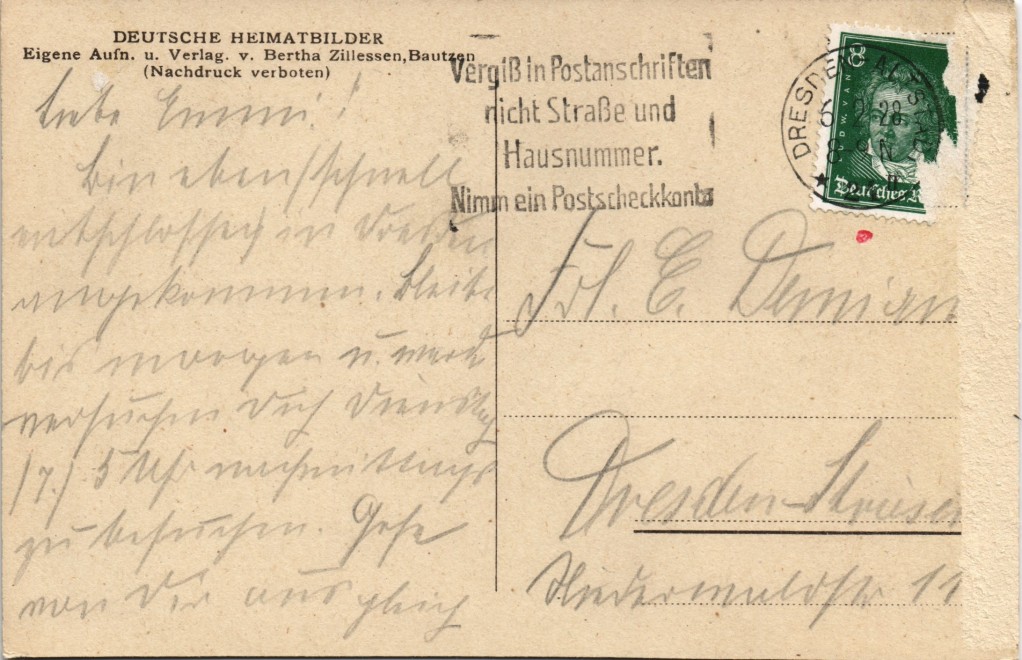 DEUTSCHE HEIMATBILDER
Eigene Aufn. u. Verlag. v. Bertha Zillessen, Bautzen
(Nachdruck verboten)
Vergiß in Postanschriften
nicht Straße und
Hausnummer.
Nimm ein Postscheckkonto
DRESDEN ALTSTADT
8
Deutsches R
Liebe Emmi!
Bin eben schnell
entschlossen in Dresden
angekommen. Bleibe
bis morgen u. werde
versuchen Dich Dienstag
/7./ 5 Uhr nachmittags
zu besuchen. Gehe
von Dir aus gleich
Frl. E. Demian
Dresden-Striesen
Niederwaldstr 11